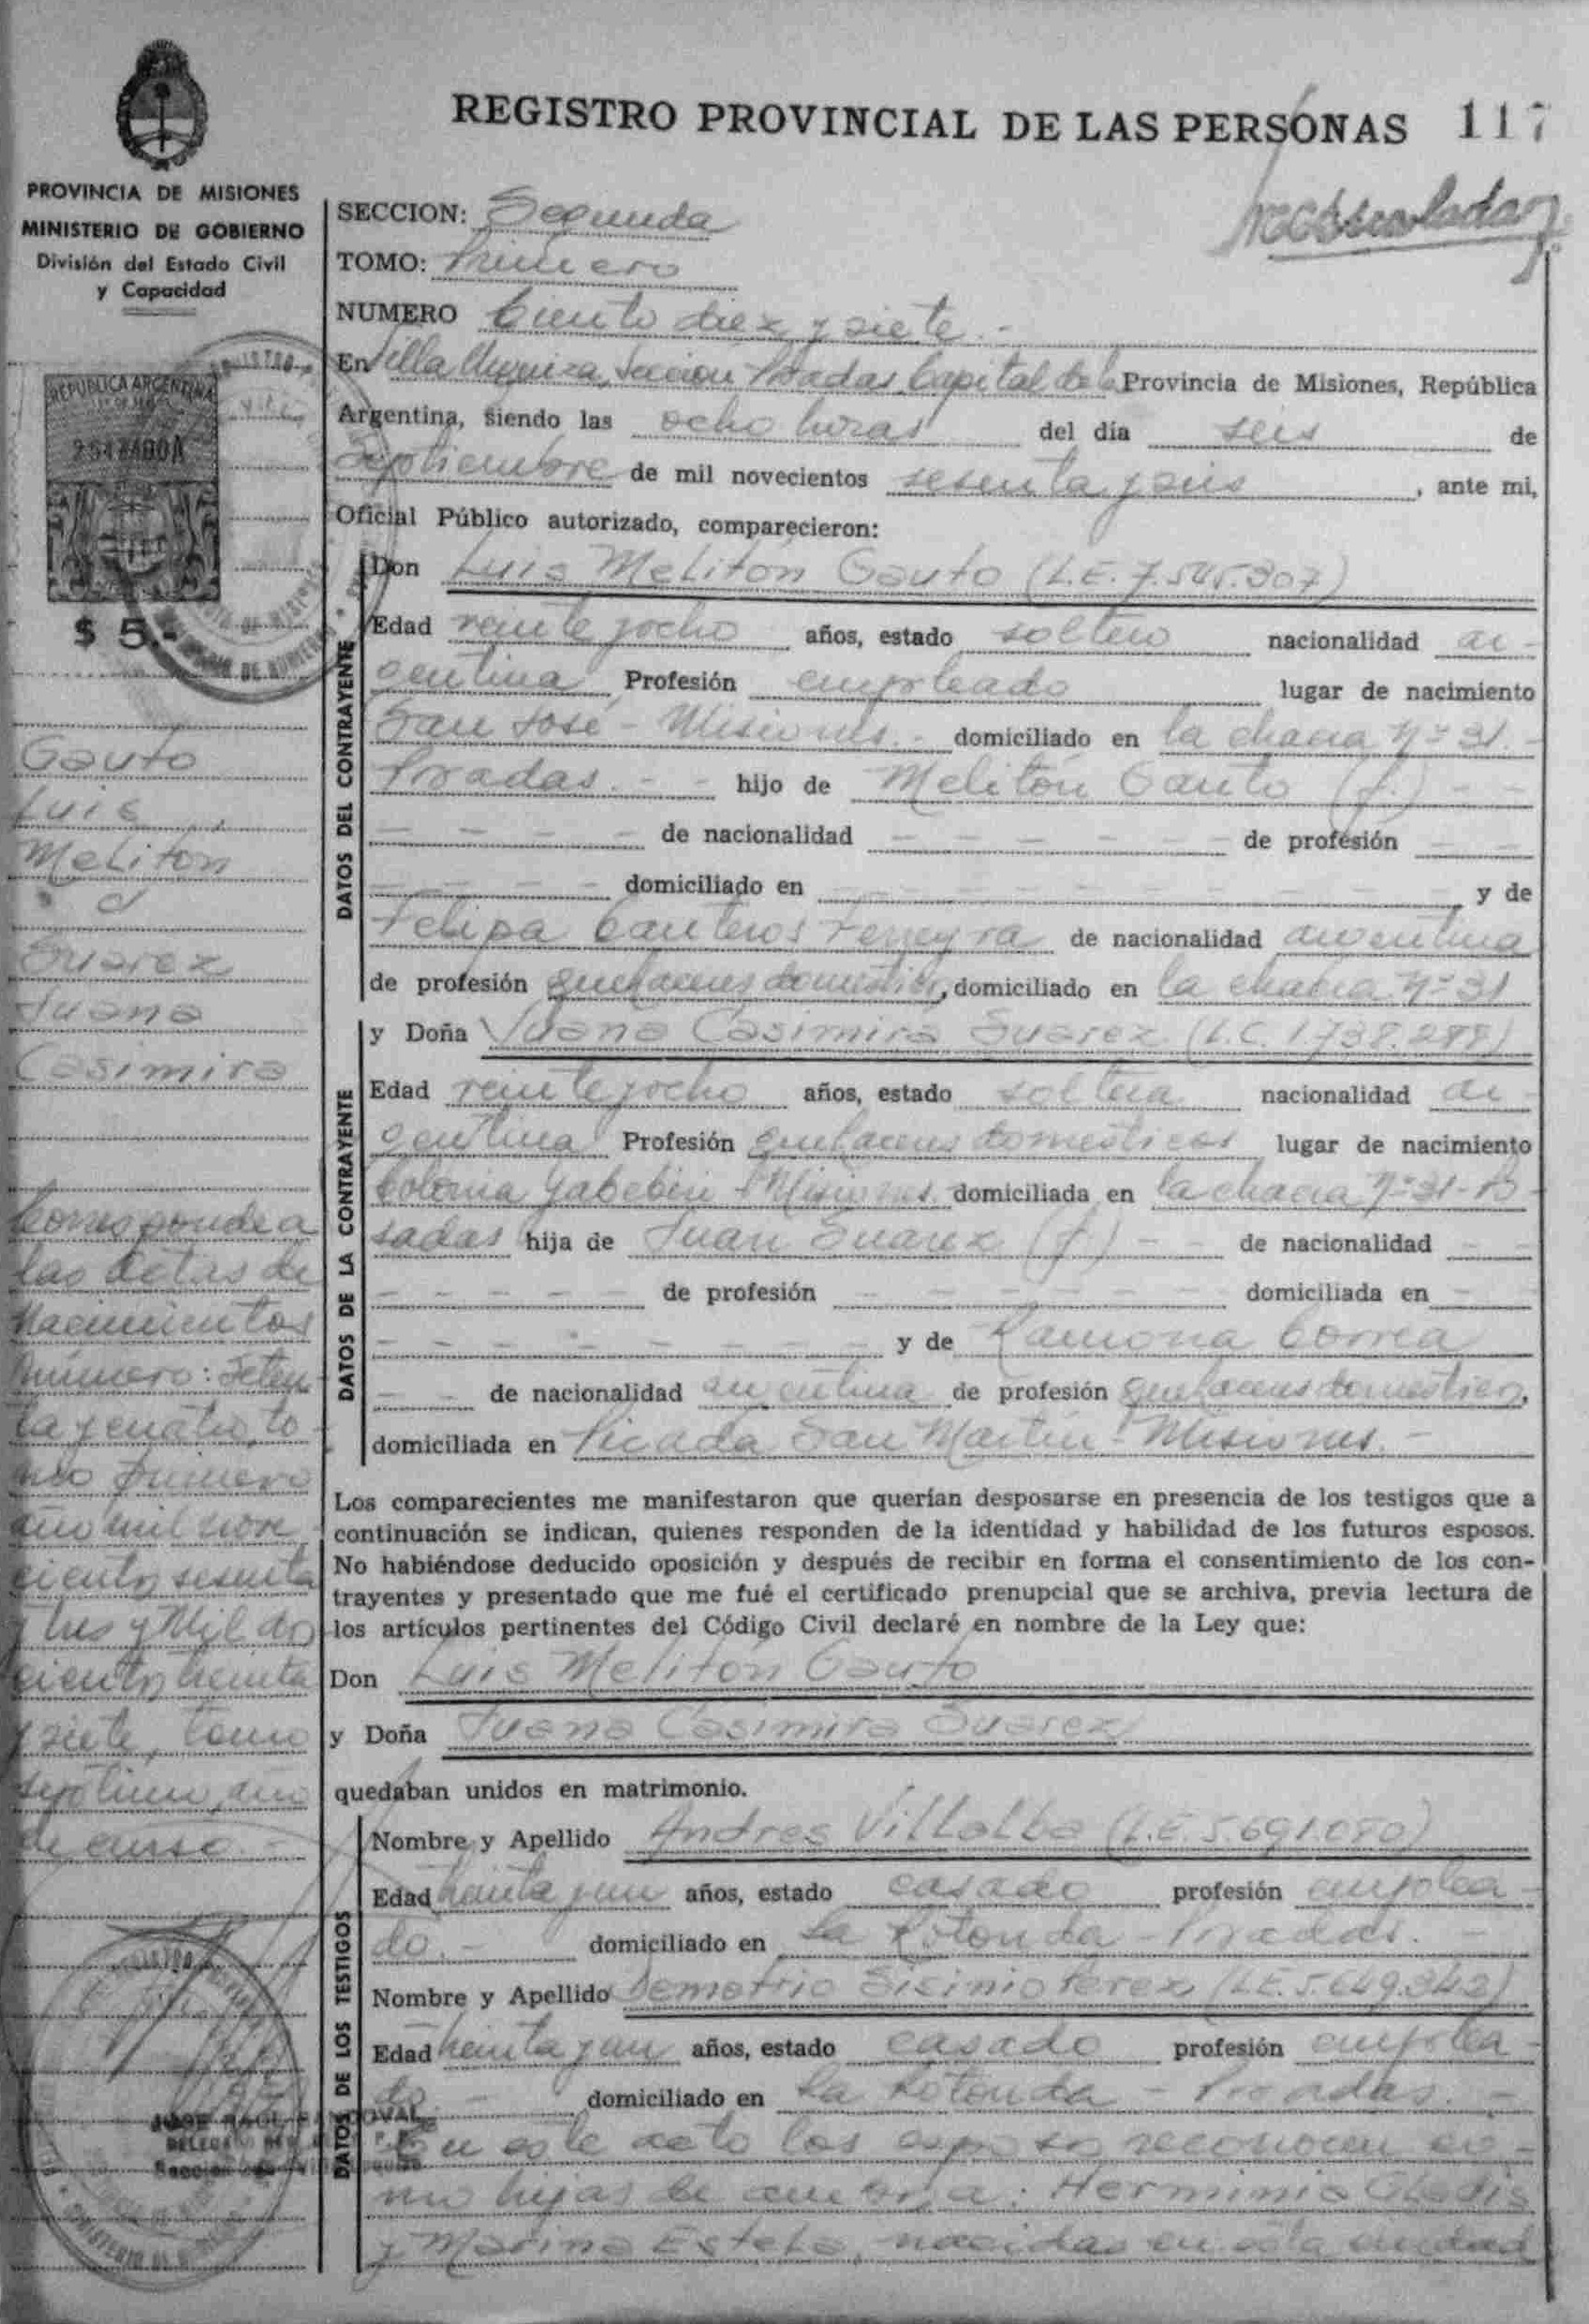 REGISTRO PROVINCIAL DE LAS PERSONAS 117
PROVINCIA DE MISIONES
MINISTERIO DE GOBIERNO
División del Estado Civil
y Capacidad
REPUBLICA ARGENTINA
$ 5.-
Gauto
Luis
Meliton
Suarez
Juana
Casimira
Corresponde a
las actas de
Nacimientos
número: Seten
ta y cuatro, to
mo primero
año mil nove
cientos sesenta
y tres y Mil dos
cientos treinta
y siete, tomo
septimo, año
de curso.-
SECCION: Segunda
TOMO: Primero
NUMERO Ciento diez y siete.-
En Villa Urquiza, Sección Posadas Capital de la Provincia de Misiones, República
Argentina, siendo las ocho horas del día seis de
Septiembre de mil novecientos sesenta y seis, ante mi,
Oficial Público autorizado, comparecieron:
DATOS DEL CONTRAYENTE
Don Luis Melitón Gauto (L.E. 7.545.307)
Edad veinte y ocho años, estado soltero nacionalidad ar-
gentina Profesión empleado lugar de nacimiento
San José - Misiones.- domiciliado en la chacra Nº 31.-
Posadas.- - hijo de Melitón Gauto (f.) - -
- - - - - de nacionalidad - - - - - - de profesión - -
- - - - domiciliado en - - - - - - - - y de
Felipa Canteros Ferreyra de nacionalidad argentina
de profesión quehaceres domésticos, domiciliado en la chacra Nº 31
DATOS DE LA CONTRAYENTE
y Doña Juana Casimira Suarez (L.C. 1.738.288)
Edad veinte y ocho años, estado soltera nacionalidad ar-
gentina Profesión quehaceres domesticos lugar de nacimiento
Colonia Yabebiri - Misiones domiciliada en la chacra Nº 31 - Po-
sadas hija de Juan Suarez (f.) - - de nacionalidad - -
- - - - - de profesión - - - - - - domiciliada en -
- - - - - - - - y de Ramona Correa
- - de nacionalidad argentina de profesión quehaceres domesticos,
domiciliada en Picada San Martín - Misiones.-
Los comparecientes me manifestaron que querían desposarse en presencia de los testigos que a
continuación se indican, quienes responden de la identidad y habilidad de los futuros esposos.
No habiéndose deducido oposición y después de recibir en forma el consentimiento de los con-
trayentes y presentado que me fué el certificado prenupcial que se archiva, previa lectura de
los artículos pertinentes del Código Civil declaré en nombre de la Ley que:
Don Luis Melitón Gauto
y Doña Juana Casimira Suarez
quedaban unidos en matrimonio.
DATOS DE LOS TESTIGOS
Nombre y Apellido Andres Villalba (L.E. 5.691.080)
Edad treinta y un años, estado casado profesión emplea-
do.- domiciliado en La Rotonda - Posadas.-
Nombre y Apellido Demetrio Sisinio Perez (L.E. 5.649.343)
Edad treinta y un años, estado casado profesión emplea-
do - domiciliado en La Rotonda - Posadas.-
En este acto los esposos reconocen co-
mo hijas de ambos a: Herminia Gladis
y Marina Estela, nacidas en esta ciudad